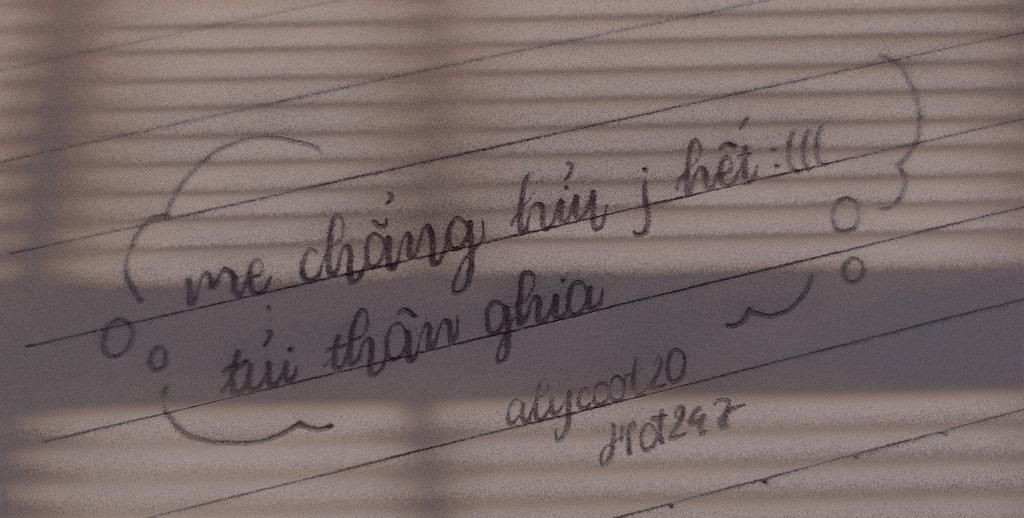 mẹ chẳng hỉu j hết :(((
tủi thân ghia
atycoot20
Hot247